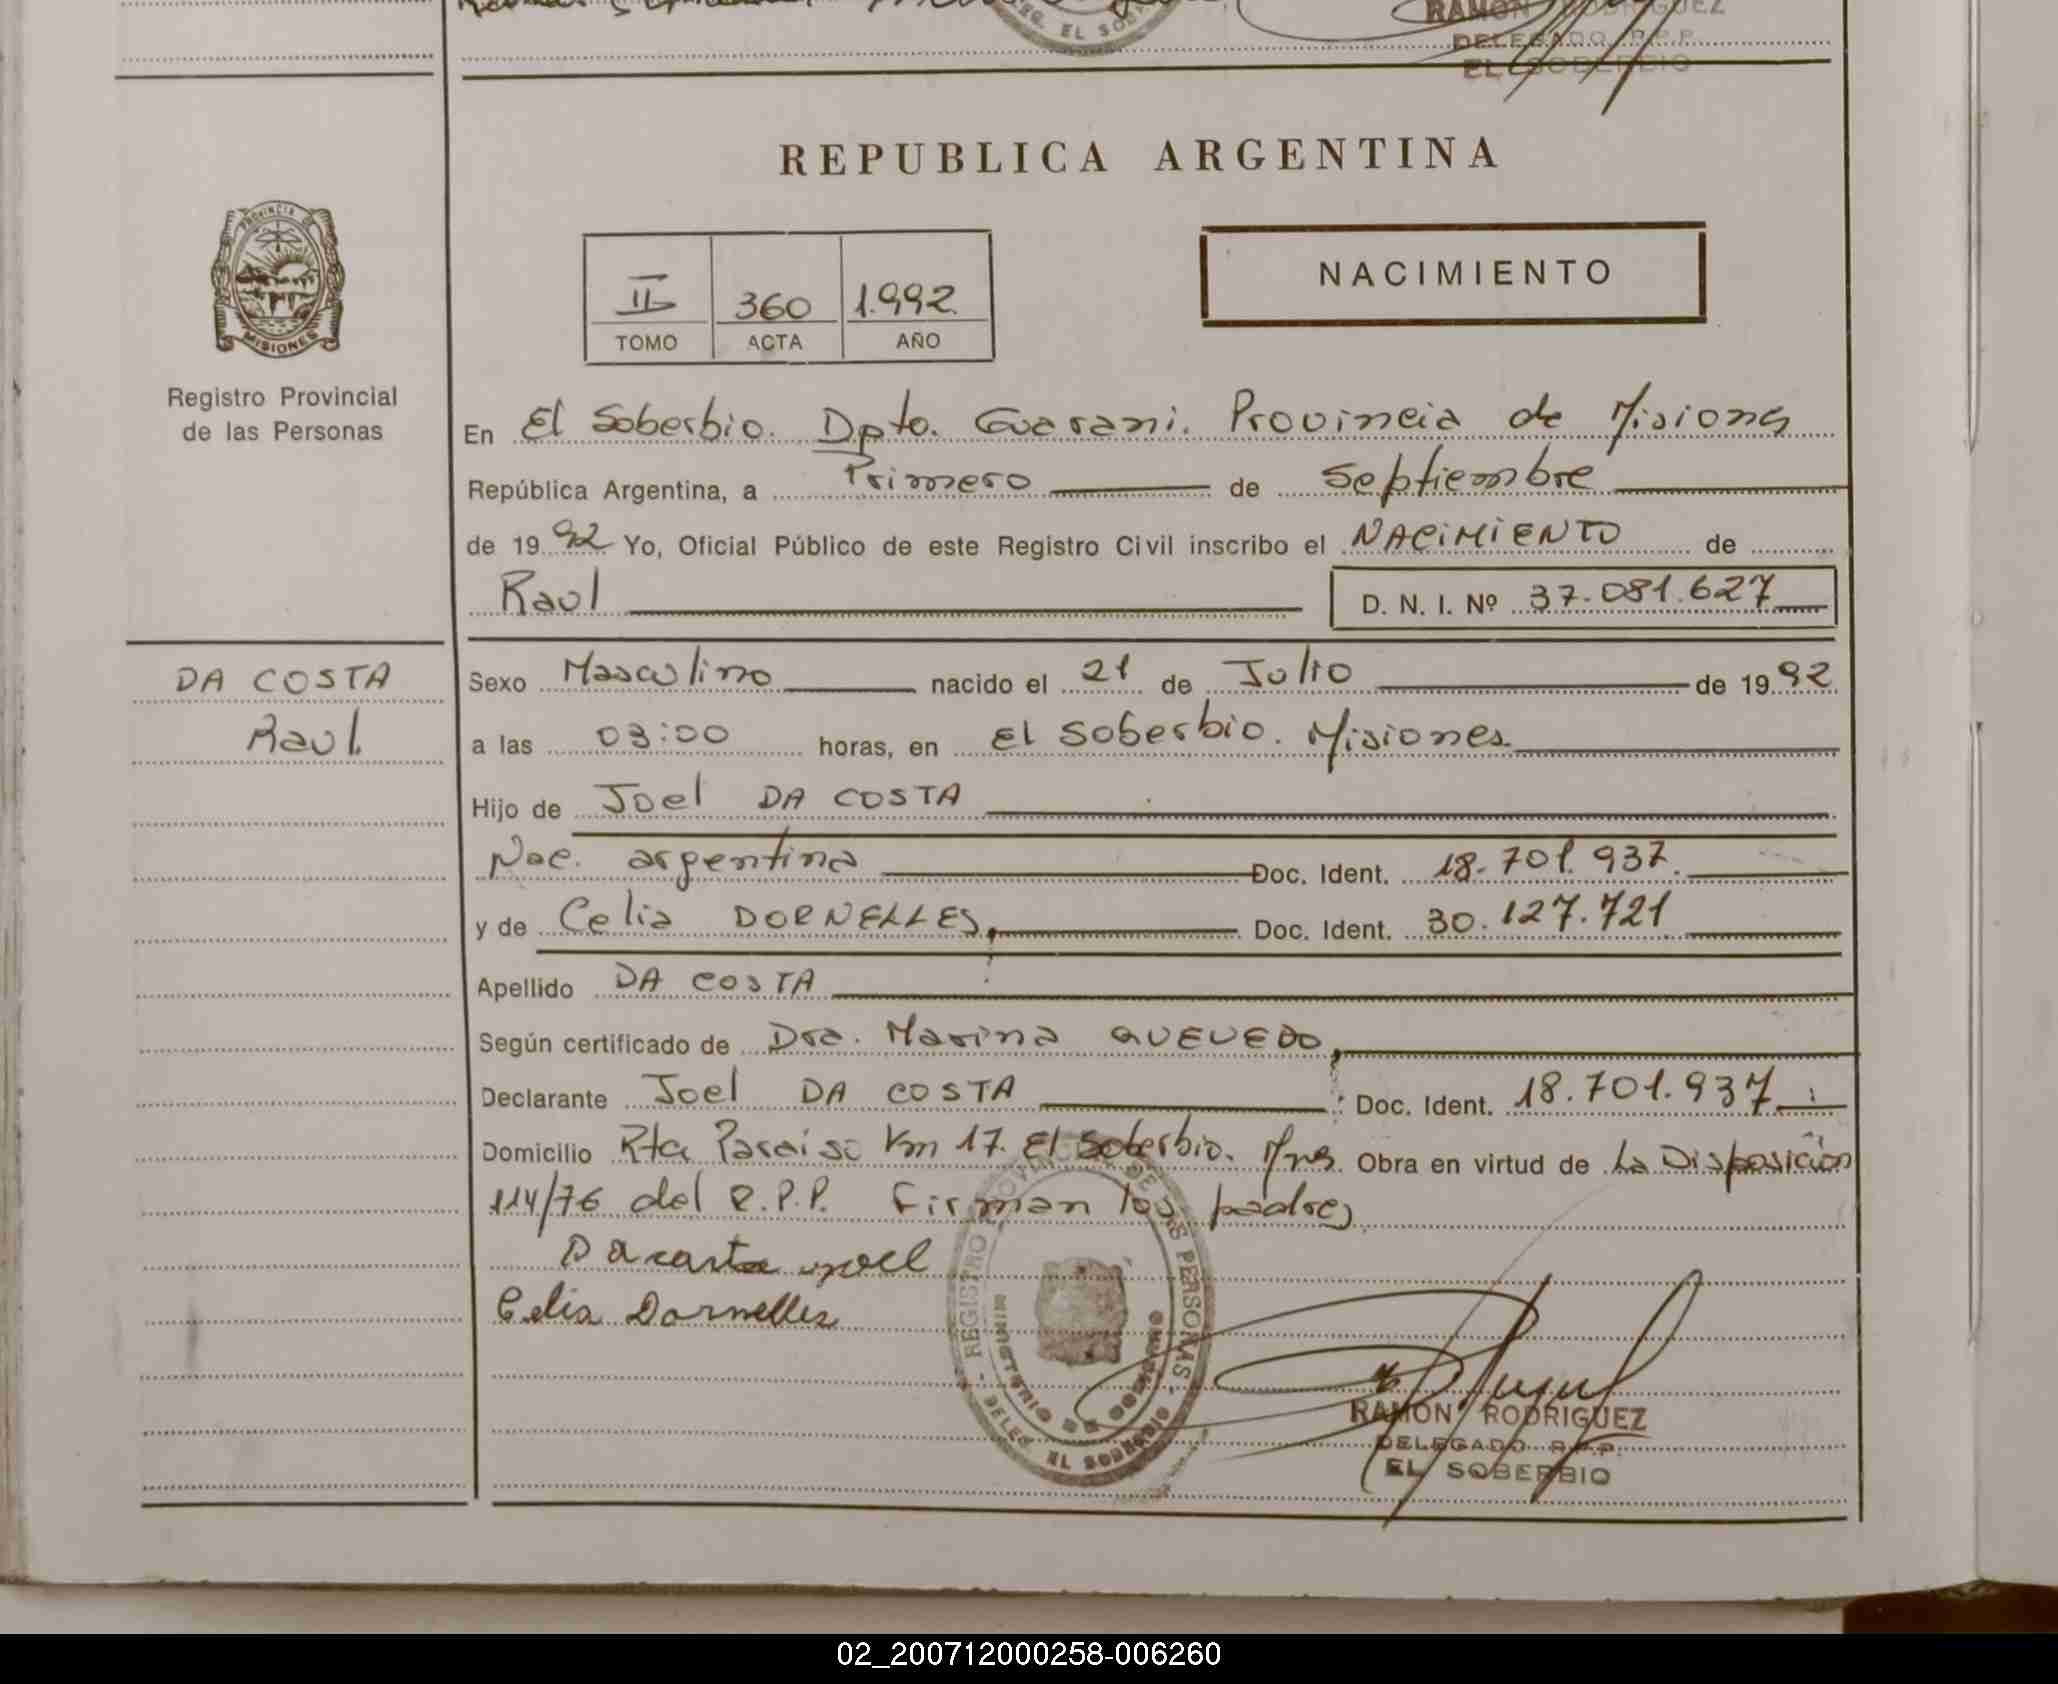 REG. EL SOBERBIO
RAMON RODRIGUEZ
DELEGADO R.P.P.
EL SOBERBIO
REPUBLICA ARGENTINA
PROVINCIA DE
MISIONES
Registro Provincial
de las Personas
II 360 1.992
TOMO ACTA AÑO
NACIMIENTO
En El Soberbio. Dpto. Guarani. Provincia de Misiones
República Argentina, a Primero de Septiembre
de 1992 Yo, Oficial Público de este Registro Civil inscribo el NACIMIENTO de
Raul D. N. I. Nº 37.081.627
DA COSTA
Raul.
Sexo Masculino nacido el 21 de Julio de 1992
a las 03:00 horas, en El Soberbio. Misiones.
Hijo de Joel DA COSTA
Nac. argentina Doc. Ident. 18.701.937.
y de Celia DORNELLES, Doc. Ident. 30.127.721
Apellido DA COSTA
Según certificado de Dra. Marina QUEVEDO,
Declarante Joel DA COSTA Doc. Ident. 18.701.937
Domicilio Rta Paraiso Km 17. El Soberbio. Mnes. Obra en virtud de La Disposición
114/76 del R.P.P. Firman los padres
Dacosta Joel
Celia Dornelles
REGISTRO PROVINCIAL DE LAS PERSONAS
MINISTERIO DE GOBIERNO
DELEG. EL SOBERBIO
RAMON RODRIGUEZ
DELEGADO R.P.P.
EL SOBERBIO
02_200712000258-006260